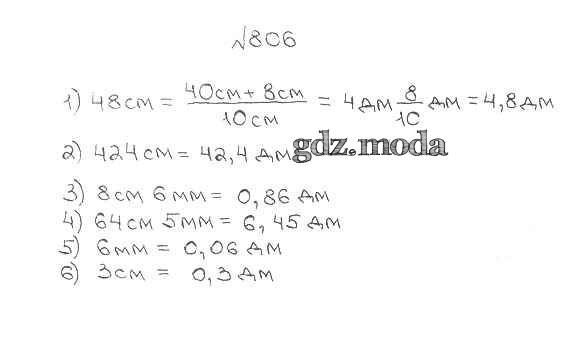 №806
1) 48см = 40см + 8см / 10см = 4дм 8/10 дм = 4,8дм
2) 424см = 42,4дм
gdz.moda
3) 8см 6мм = 0,86дм
4) 64см 5мм = 6,45дм
5) 6мм = 0,06дм
6) 3см = 0,3дм